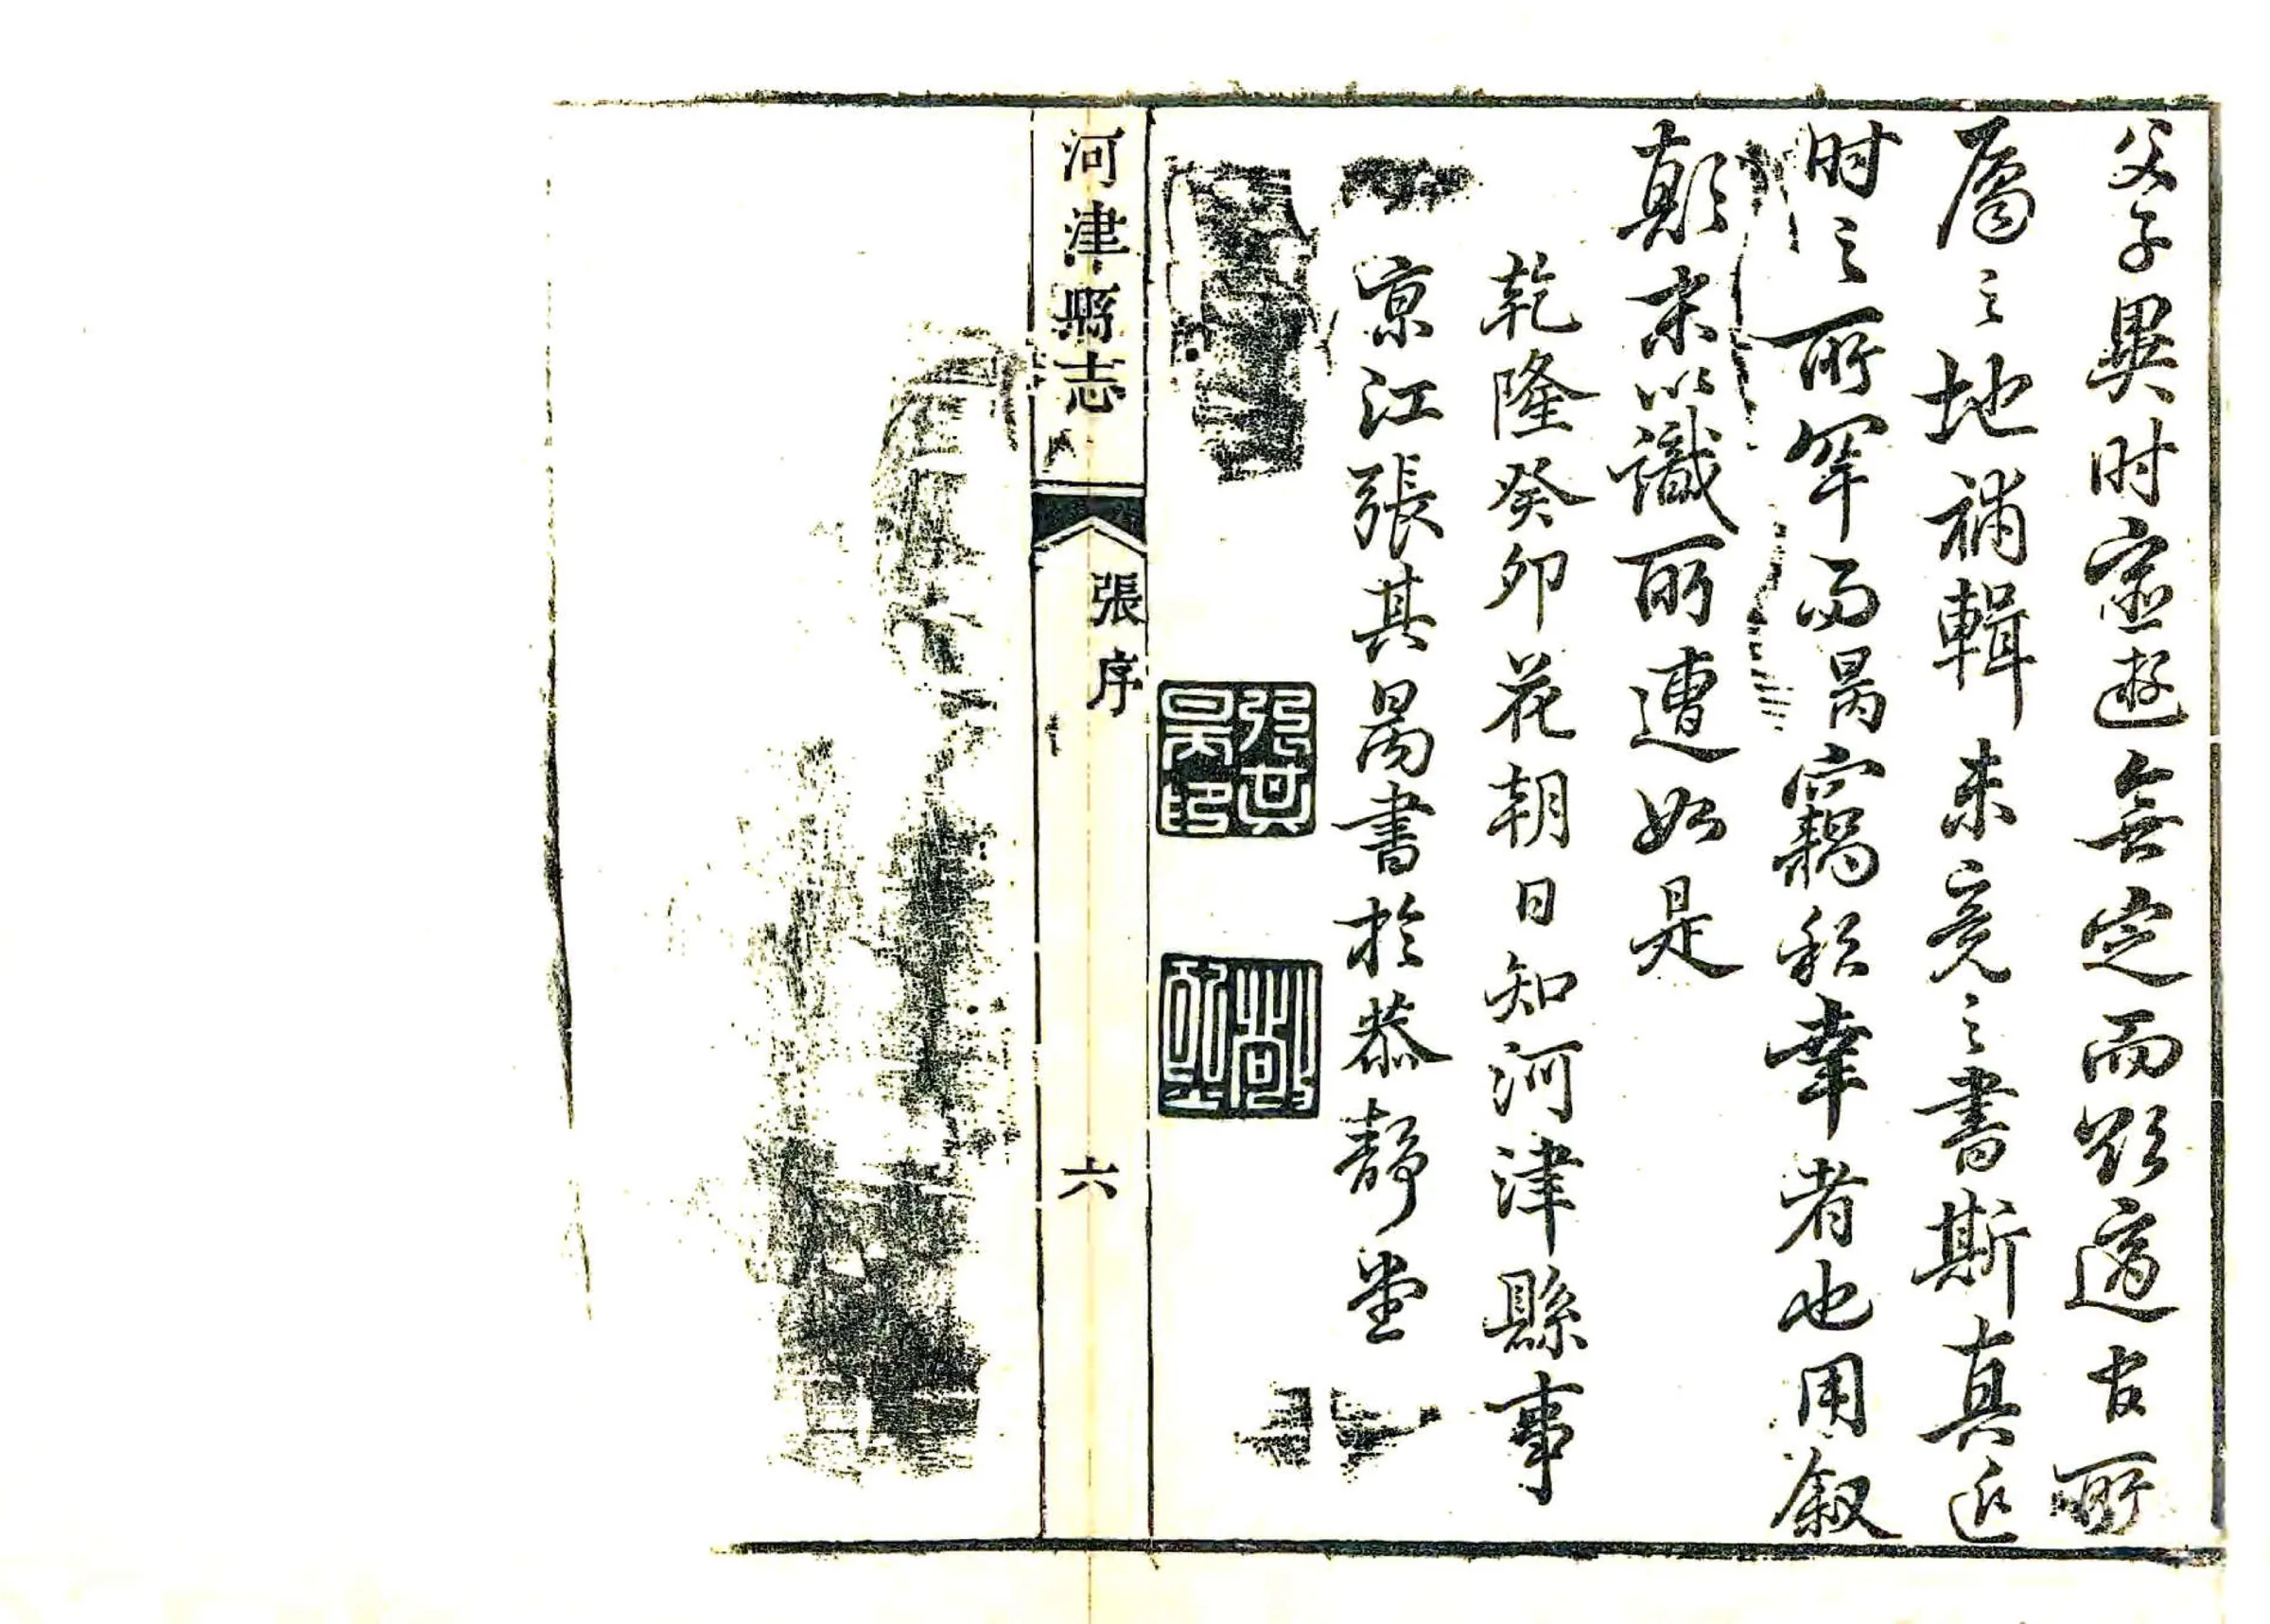 父子異时宦遊無定而適官所
屬之地補輯未竟之書斯真近
时之所罕而昺竊私幸者也用叙
顛末以識所遭如是
乾隆癸卯花朝日知河津縣事
京江張其昺書於恭靜堂
張其昺印
河津縣志
張序
六